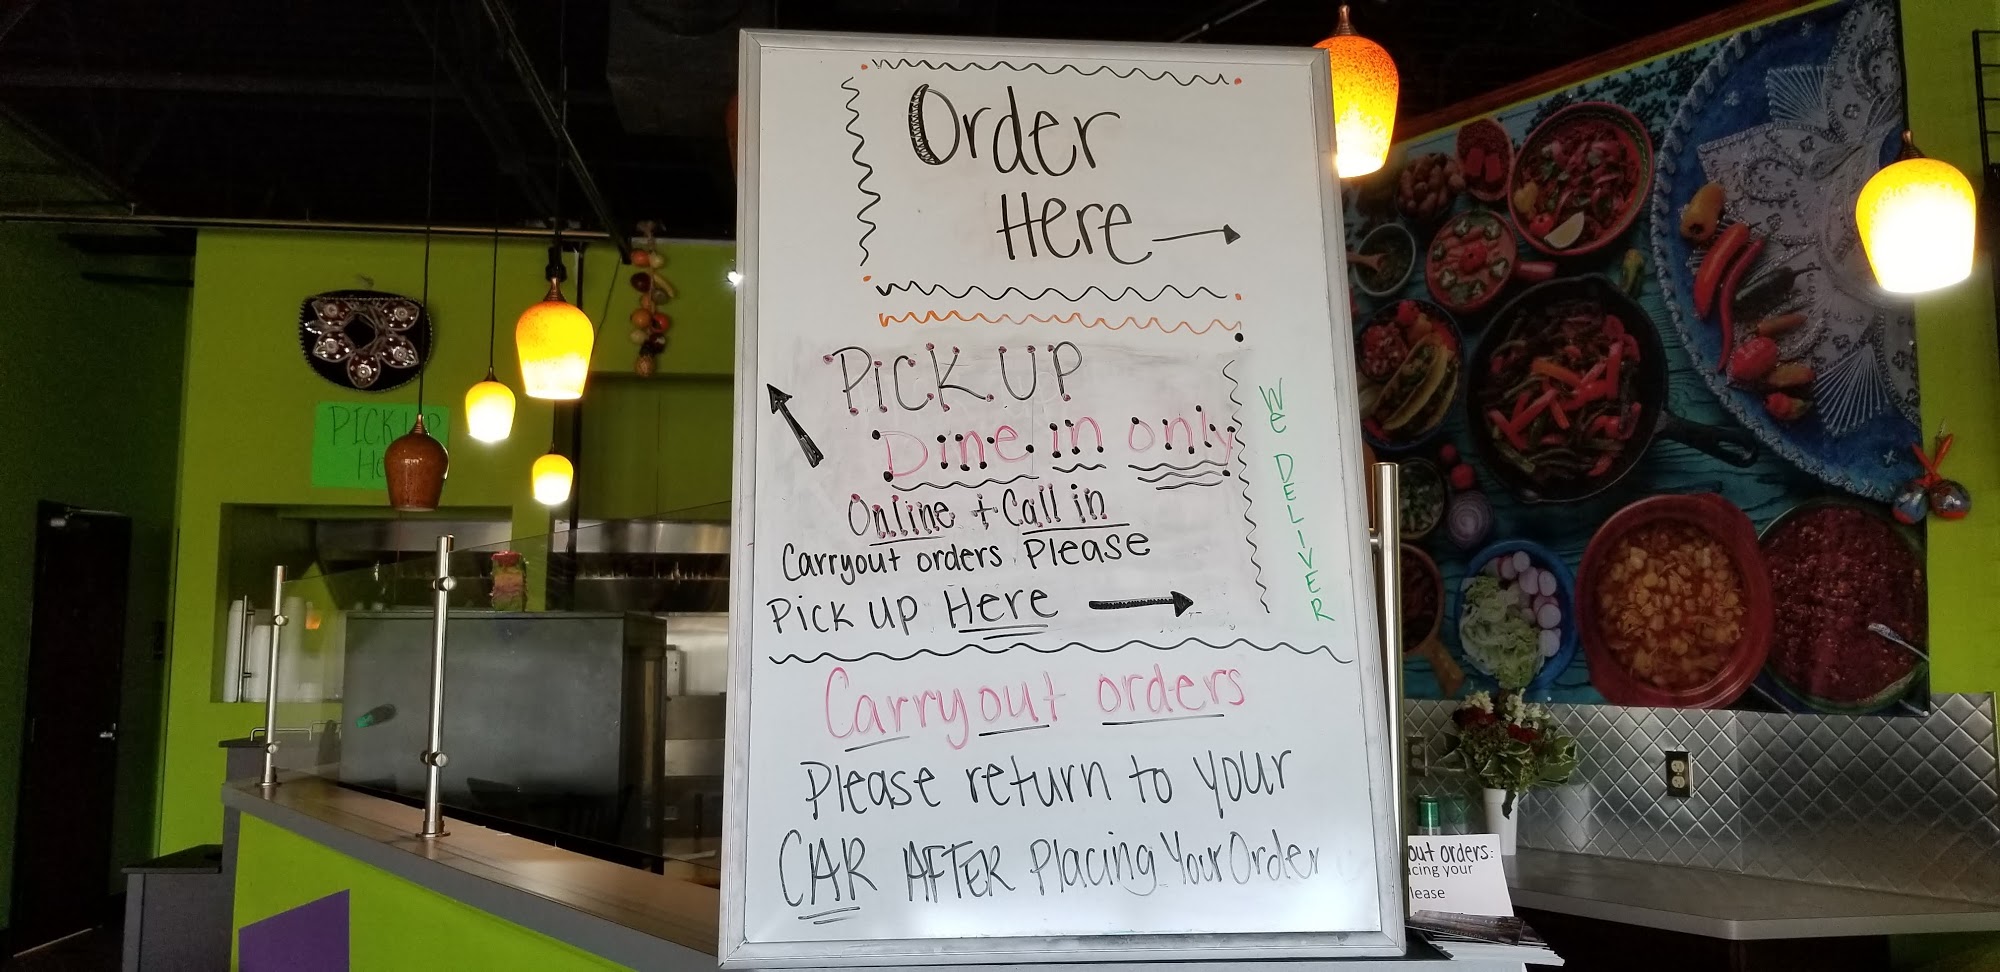 Order
Here
PiCK UP
Dine in only
Online + Call in
Carryout orders Please
Pick up Here
WE DELIVER
Carryout orders
Please return to your
CAR AFTER Placing Your Order
PICK UP
out orders:
acing your
lease